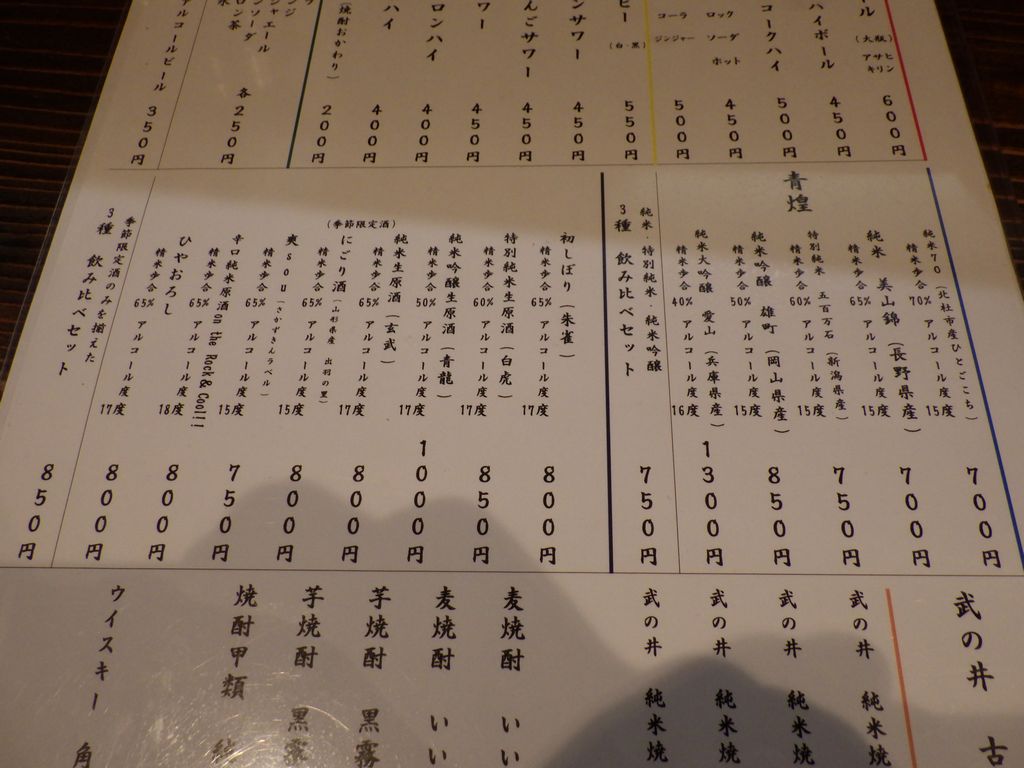 ル
(大瓶)
アサヒ
キリン
600円
ハイボール
450円
コークハイ
500円
ロック
ソーダ
ホット
450円
コーラ
ジンジャー
500円
ビー
(白・黒)
550円
ンサワー
450円
んごサワー
450円
ワー
450円
ロンハイ
400円
ハイ
400円
(焼酎おかわり)
200円
各250円
アルコールビール
350円
青煌
純米70(北杜市産ひとごこち)
精米歩合70% アルコール度15度
700円
純米 美山錦(長野県産)
精米歩合65% アルコール度15度
700円
特別純米 五百万石(新潟県産)
精米歩合60% アルコール度15度
750円
純米吟醸 雄町(岡山県産)
精米歩合50% アルコール度15度
850円
純米大吟醸 愛山(兵庫県産)
精米歩合40% アルコール度16度
1300円
純米・特別純米・純米吟醸
3種 飲み比べセット
750円
初しぼり(朱雀)
精米歩合65% アルコール度17度
800円
特別純米生原酒(白虎)
精米歩合60% アルコール度17度
850円
純米吟醸生原酒(青龍)
精米歩合50% アルコール度17度
1000円
純米生原酒(玄武)
精米歩合65% アルコール度17度
800円
(季節限定酒)
にごり酒(山形県産 出羽の里)
精米歩合65% アルコール度15度
800円
爽sou(さかずきんラベル)
精米歩合65% アルコール度15度
750円
辛口純米原酒on the Rock&Cool!!
精米歩合65% アルコール度18度
800円
ひやおろし
精米歩合65% アルコール度17度
800円
季節限定酒のみを揃えた
3種 飲み比べセット
850円
武の井 古
武の井 純米焼
武の井 純米焼
武の井 純米焼
武の井 純米焼
麦焼酎 いい
麦焼酎 いい
芋焼酎 黒霧
芋焼酎 黒霧
焼酎甲類
ウイスキー 角